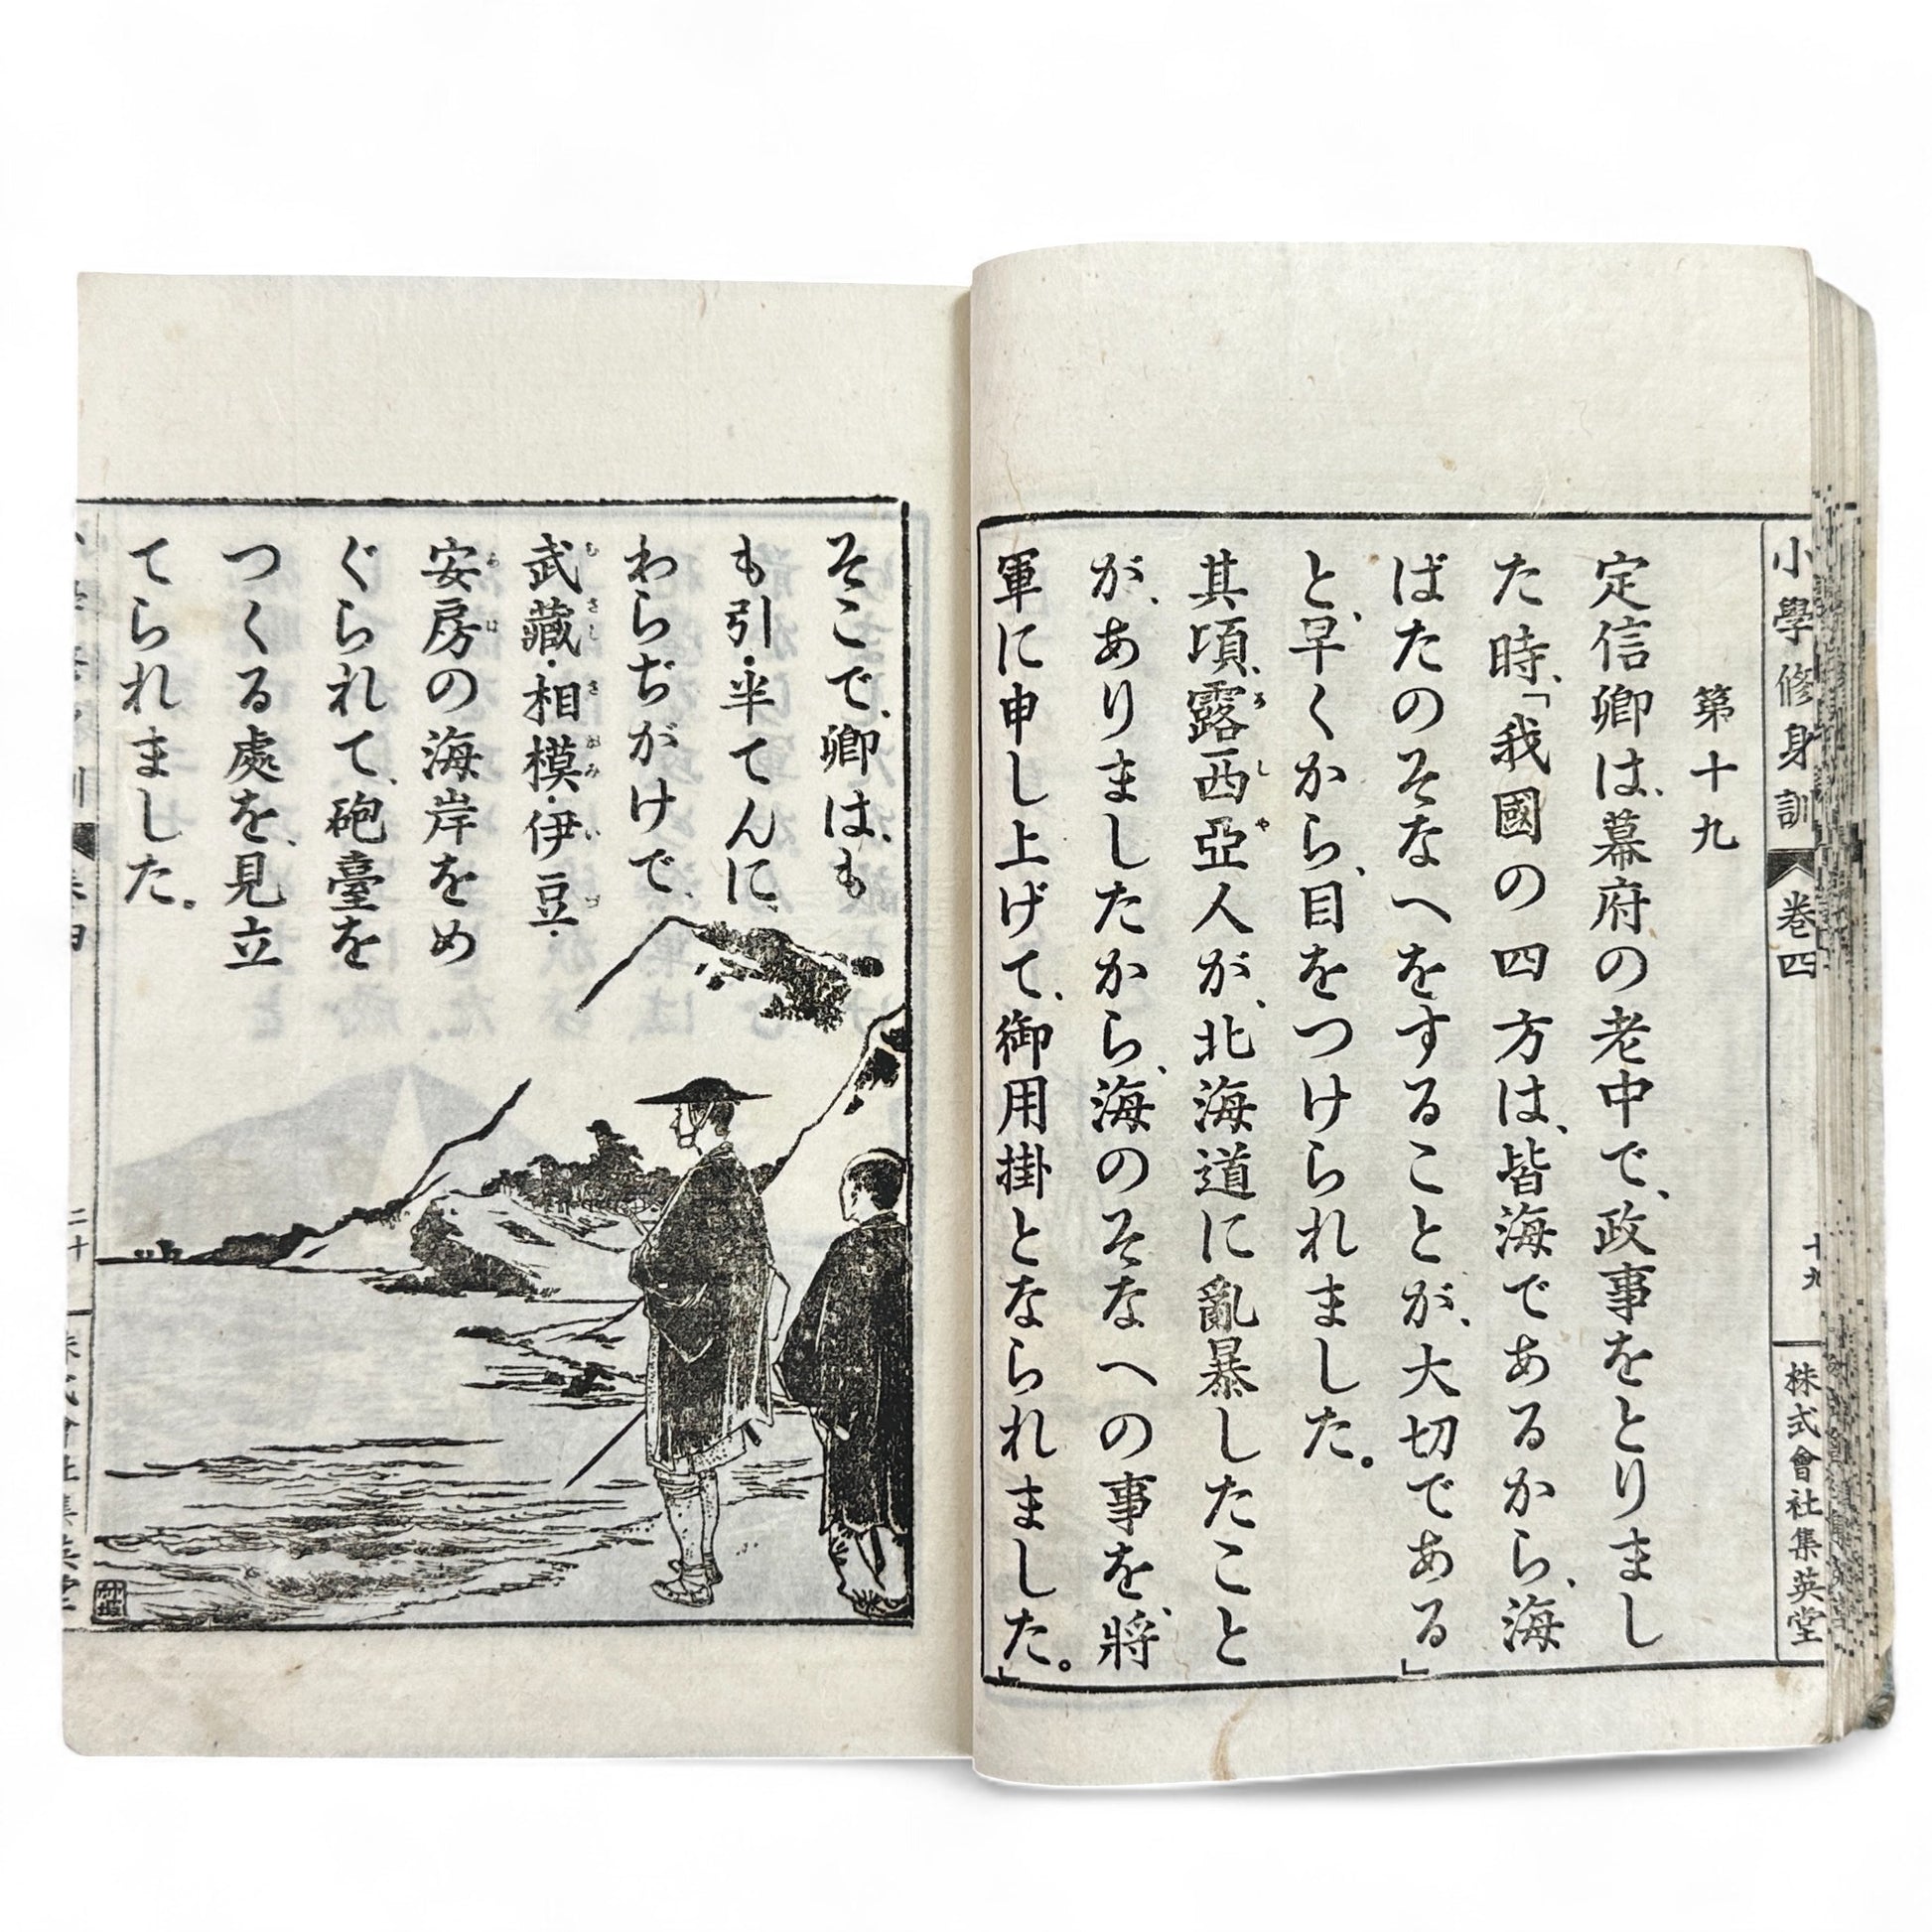 小學修身訓
卷四
十九
株式會社集英堂
第十九
定信卿は、幕府の老中で、政事をとりまし
た時、「我國の四方は、皆海であるから、海
ばたのそなへをすることが、大切である」
と、早くから、目をつけられました。
其頃、露西亞人が、北海道に亂暴したこと
が、ありましたから、海のそなへの事を、將
軍に申し上げて、御用掛となられました。」
そこで、卿は、も
も引・半てんに、
わらぢがけで、
武藏・相模・伊豆・
安房の海岸をめ
ぐられて、砲臺を
つくる處を、見立
てられました。
二十